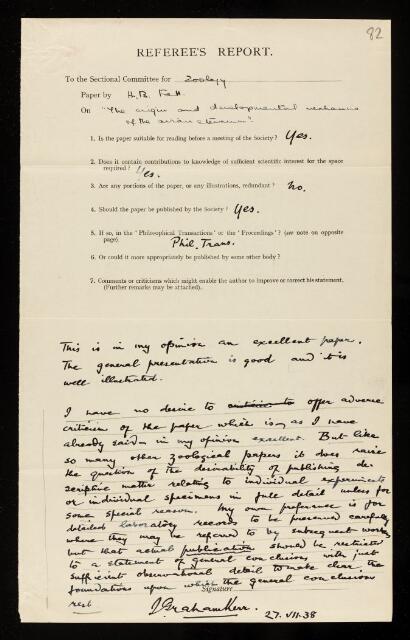 82
REFEREE'S REPORT.
To the Sectional Committee for Zoology
Paper by H.B. Fell.
On "The origin and developmental mechanics
of the avian sternum".
1. Is the paper suitable for reading before a meeting of the Society? Yes.
2. Does it contain contributions to knowledge of sufficient scientific interest for the space
required? Yes.
3. Are any portions of the paper, or any illustrations, redundant? No.
4. Should the paper be published by the Society? Yes.
5. If so, in the 'Philosophical Transactions' or the 'Proceedings'? (see note on opposite
page). Phil. Trans.
6. Or could it more appropriately be published by some other body?
7. Comments or criticisms which might enable the author to improve or correct his statement.
(Further remarks may be attached).
This is in my opinion an excellent paper.
The general presentation is good and it is
well illustrated.
I have no desire to offer adverse
criticism of the paper which is, as I have
already said in my opinion excellent. But like
so many other zoological papers it does raise
the question of the desirability of publishing de-
scriptive matter relating to individual experiments
or individual specimens in full detail unless for
some special reason. My own preference is for
detailed laboratory records to be preserved carefully
where they may be referred to by subsequent workers
but that actual publication should be restricted
to a statement of general conclusions with just
sufficient observational detail to make clear the
foundations upon which the general conclusions
Signature
rest
J. Graham Kerr.
27.VII.38